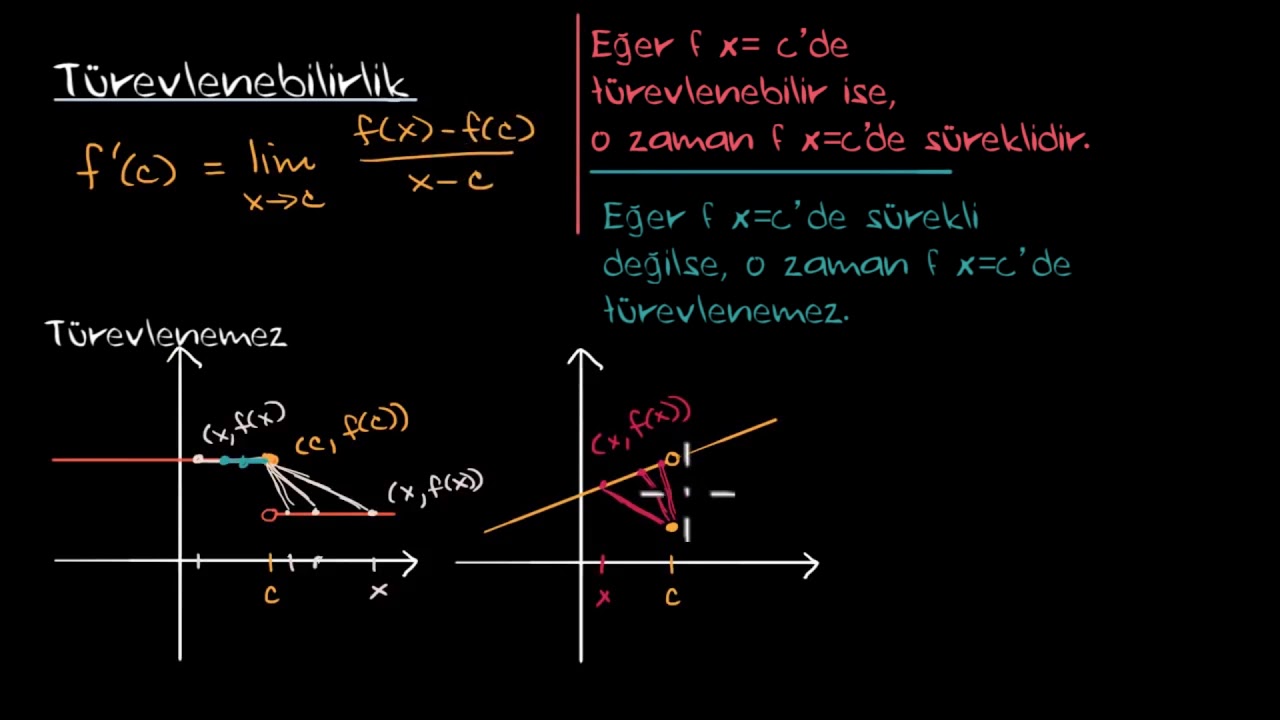 Türevlenebilirlik
f'(c) = lim x→c f(x)-f(c) / x-c
Eğer f x= c'de
türevlenebilir ise,
o zaman f x=c'de süreklidir.
Eğer f x=c'de sürekli
değilse, o zaman f x=c'de
türevlenemez.
Türevlenemez
(x,f(x)
(c, f(c))
(x, f(x))
c
x
(x, f(x))
x
c